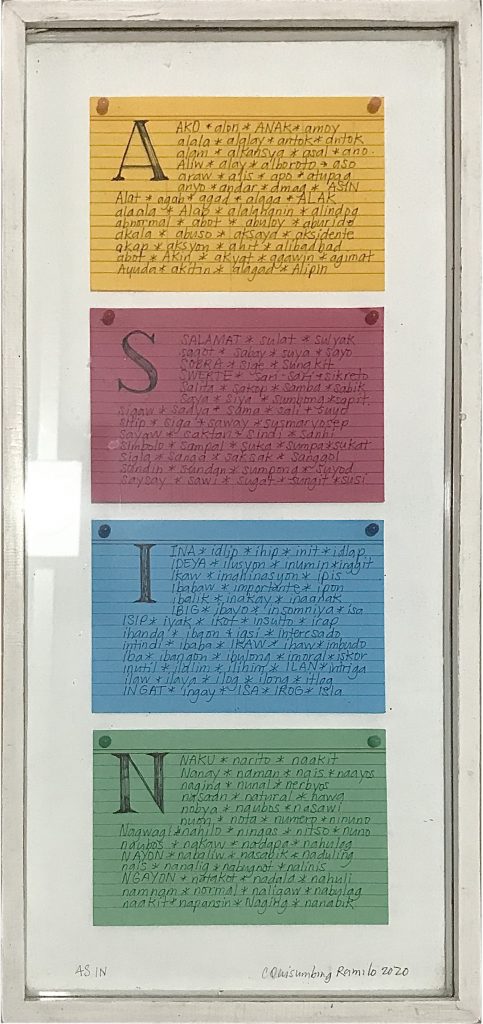 A
AKO * alon * ANAK * amoy
alala * alalay * antok * dntok
alam * alkansya * asal * ano
Aliw * alay * alboroto * aso
araw * alis * apo * atupag
anyo * andar * amag * ASIN
Alat * agah * agad * alaga * ALAK
alaala * Alab * alalahanin * alindog
abnormal * abot * abuloy * aburido
akala * abuso * aksaya * aksidente
akap * aksyon * ahit * alibadbad
abot * Akin * akyat * agawin * agimat
Ayuda * akitin * alagad * Alipin
S
SALAMAT * sulat * sulyak
sagot * sabay * suya * sayo
SOBRA * sige * sungkit
SWERTE * sari-sari * sikreto
salita * sakop * samba * sabik
Saya * siya * sumbong * sapit
sigaw * sadya * sama * sali * suyo
sitip * siga * saway * susmaryosep
sayaw * saktan * sindi * sanhi
simbolo * sampal * suka * sumpa * sukat
sigla * sanga * saksak * sanggol
sandin * sundan * sumpong * suyod
saysay * sawi * sugat * sungit * susi
I
INA * idlip * ihip * init * idlap
IDEYA * ilusyon * inumin * inggit
Ikaw * imahinasyon * ipis
Ibabaw * importante * ipon
ibalik * inakay * inaanak
IBIG * ibayo * insomniya * isa
ISIP * iyak * ikot * insulto * irap
ihanda * ibaon * igsi * interesado
intindi * ibaba * IKAW * ihaw * imbudo
Iba * ibangon * ibulong * imoral * iskor
inutil * ilalim * ilihim * ILAN * intriga
ilaw * ilaya * ilog * ilong * itlog
INGAT * ingay * ISA * IROG * isla
N
NAKU * narito * naakit
Nanay * naman * nais * naayos
naging * nunal * nerbyos
nasaan * natural * nawa
nobya * naubos * nasawi
nuon * nota * numero * ninuno
Nagwagi * nanilo * ningas * nitso * nuno
naubos * nakaw * nadapa * nahulog
NAYON * nabaliw * nasabik * naduling
nais * nanalig * nabugnot * nalinis
NGAYON * natakot * nadala * nahuli
namnam * normal * naligaw * nabulag
naakit * napansin * Naging * nanabik
ASIN
CQuisumbing Reimilo 2020